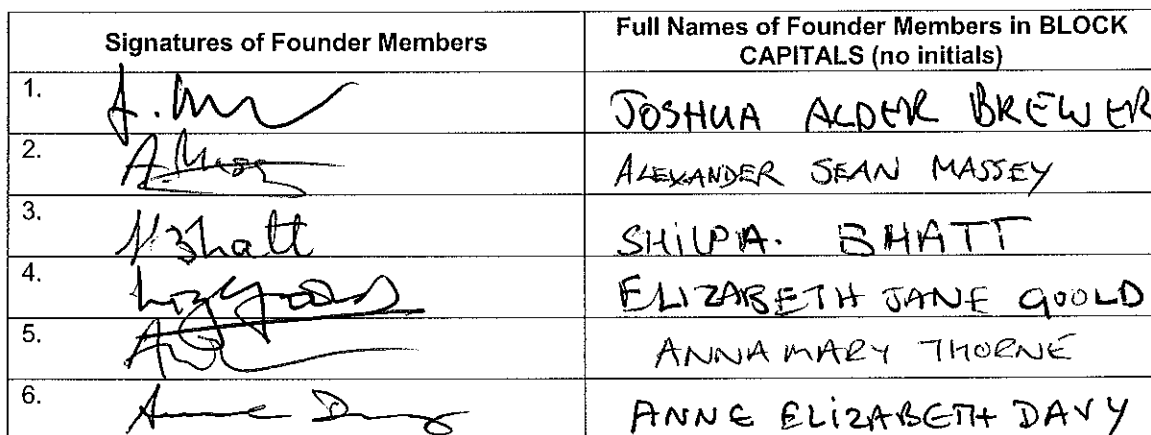 Signatures of Founder Members
Full Names of Founder Members in BLOCK
CAPITALS (no initials)
1.
JOSHUA ALDER BREWER
2.
A. Massey
ALEXANDER SEAN MASSEY
3.
Bhatt
SHILPA. BHATT
4.
Liz Goold
ELIZABETH JANE GOOLD
5.
ANNA MARY THORNE
6.
Anne Davy
ANNE ELIZABETH DAVY